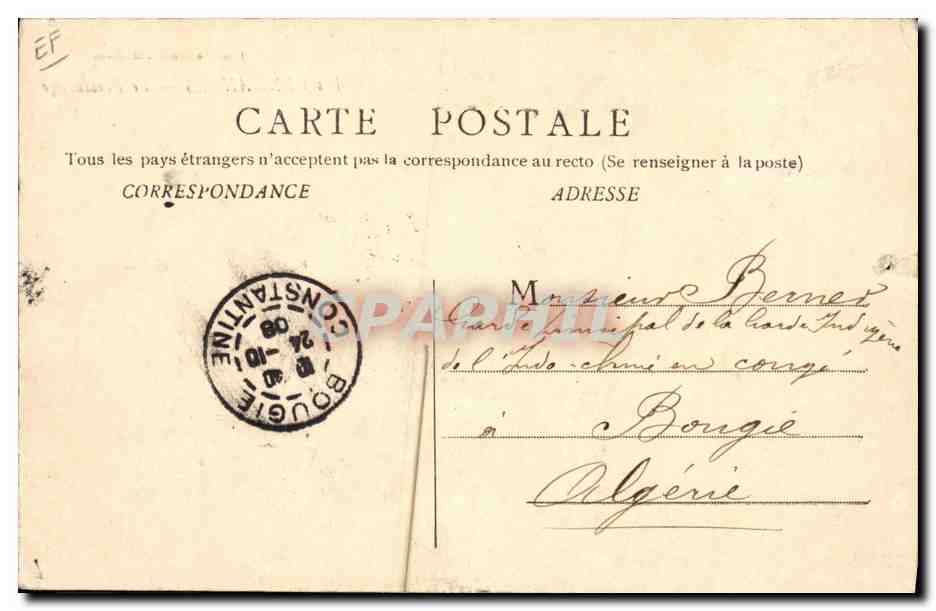 EF
CARTE POSTALE
Tous les pays étrangers n'acceptent pas la correspondance au recto (Se renseigner à la poste)
CORRESPONDANCE
ADRESSE
Monsieur Bernes
Garde principal de la Garde Indigène
de l'Indo-chine en congé
à Bougie
Algérie
BOUGIE
CONSTANTINE
24 -10
08
EPAPHIL